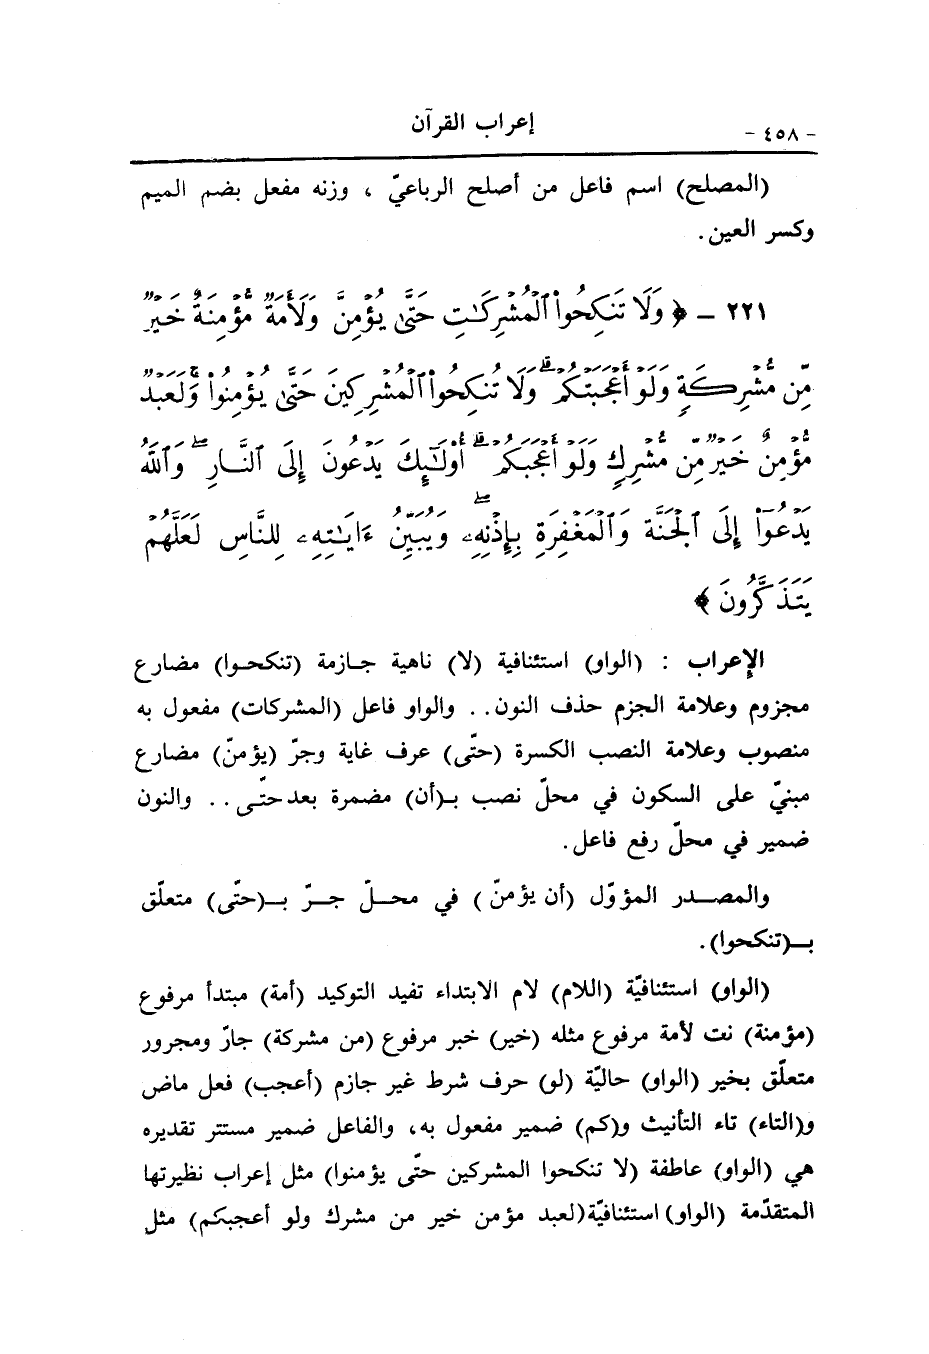 - ٤٥٨ -
إعراب القرآن
(المصلح) اسم فاعل من أصلح الرباعيّ ، وزنه مفعل بضم الميم
وكسر العين .
٢٢١ - ﴿ وَلَا تَنكِحُوا۟ ٱلْمُشْرِكَـٰتِ حَتَّىٰ يُؤْمِنَّ وَلَأَمَةٌ مُّؤْمِنَةٌ خَيْرٌ
مِّن مُّشْرِكَةٍ وَلَوْ أَعْجَبَتْكُمْ ۗ وَلَا تُنكِحُوا۟ ٱلْمُشْرِكِينَ حَتَّىٰ يُؤْمِنُوا۟ ۚ وَلَعَبْدٌ
مُّؤْمِنٌ خَيْرٌ مِّن مُّشْرِكٍ وَلَوْ أَعْجَبَكُمْ ۗ أُو۟لَـٰٓئِكَ يَدْعُونَ إِلَى ٱلنَّارِ ۖ وَٱللَّهُ
يَدْعُوٓا۟ إِلَى ٱلْجَنَّةِ وَٱلْمَغْفِرَةِ بِإِذْنِهِۦ ۖ وَيُبَيِّنُ ءَايَـٰتِهِۦ لِلنَّاسِ لَعَلَّهُمْ
يَتَذَكَّرُونَ ﴾
الإعراب : (الواو) استئنافية (لا) ناهية جازمة (تنكحوا) مضارع
مجزوم وعلامة الجزم حذف النون . . والواو فاعل (المشركات) مفعول به
منصوب وعلامة النصب الكسرة (حتّى) عرف غاية وجرّ (يؤمنّ) مضارع
مبنيّ على السكون في محلّ نصب بـ(أن) مضمرة بعد حتّى . . والنون
ضمير في محلّ رفع فاعل .
والمصدر المؤوّل (أن يؤمنّ) في محلّ جرّ بـ(حتّى) متعلّق
بـ(تنكحوا) .
(الواو) استئنافيّة (اللام) لام الابتداء تفيد التوكيد (أمة) مبتدأ مرفوع
(مؤمنة) نت لأمة مرفوع مثله (خير) خبر مرفوع (من مشركة) جارّ ومجرور
متعلّق بخير (الواو) حاليّة (لو) حرف شرط غير جازم (أعجب) فعل ماض
و(التاء) تاء التأنيث و(كم) ضمير مفعول به، والفاعل ضمير مستتر تقديره
هي (الواو) عاطفة (لا تنكحوا المشركين حتّى يؤمنوا) مثل إعراب نظيرتها
المتقدّمة (الواو) استئنافيّة (لعبد مؤمن خير من مشرك ولو أعجبكم) مثل